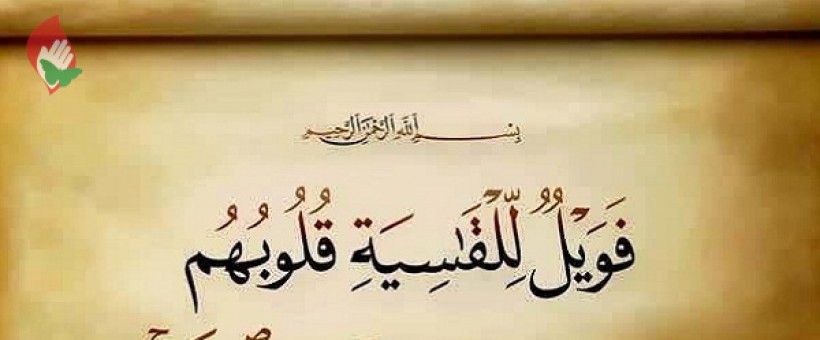 بِسْمِ اللَّهِ الرَّحْمَٰنِ الرَّحِيمِ
فَوَيْلٌ لِّلْقَاسِيَةِ قُلُوبُهُم